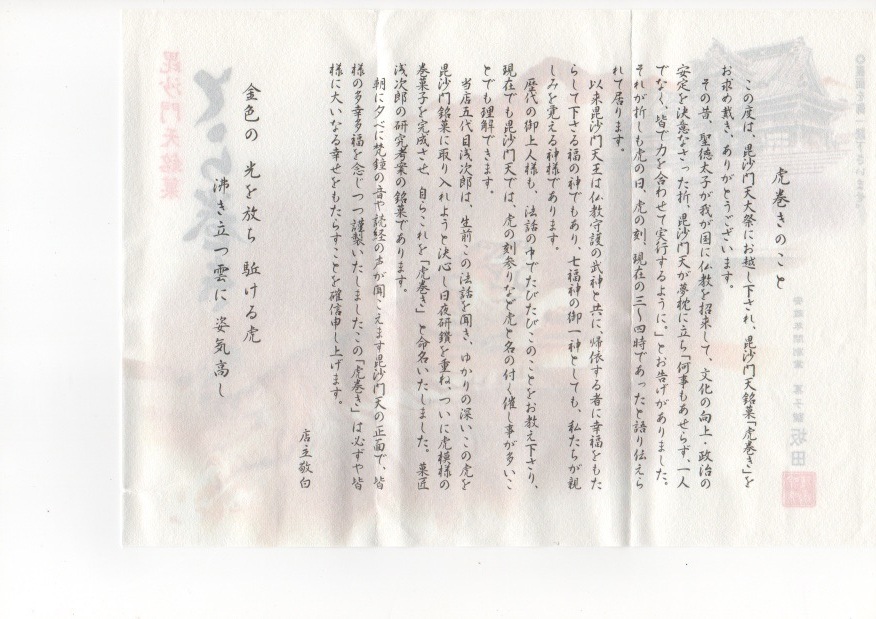 虎巻きのこと
この度は、毘沙門天大祭にお越し下され、毘沙門天銘菓「虎巻き」を
お求め戴き、ありがとうございます。
その昔、聖徳太子が我が国に仏教を招来して、文化の向上・政治の
安定を決意なさった折、毘沙門天が夢枕に立ち「何事もあせらず、一人
でなく、皆で力を合わせて実行するように。」とお告げがありました。
それが折しも虎の日、虎の刻、現在の三〜四時であったと語り伝えら
れて居ります。
以来毘沙門天王は仏教守護の武神と共に、帰依する者に幸福をもた
らして下さる福の神でもあり、七福神の御一神としても、私たちが親
しみを覚える神様であります。
歴代の御上人様も、法話の中でたびたびこのことをお教え下さり、
現在でも毘沙門天では、虎の刻参りなど虎と名の付く催し事が多いこ
とでも理解できます。
当店五代目浅次郎は、生前この法話を聞き、ゆかりの深いこの虎を
毘沙門銘菓に取り入れようと決心し日夜研鑽を重ね、ついに虎模様の
巻菓子を完成させ、自らこれを「虎巻き」と命名いたしました。菓匠
浅次郎の研究考案の銘菓であります。
朝に夕べに梵鐘の音や読経の声が聞こえます毘沙門天の正面で、皆
様の多幸多福を念じつつ謹製いたしました、この「虎巻き」は必ずや皆
様に大いなる幸せをもたらすことを確信申し上げます。
店主敬白
金色の 光を放ち 駈ける虎
沸き立つ雲に 姿気高し
毘沙門天銘菓
とら巻
菓子製 坂田